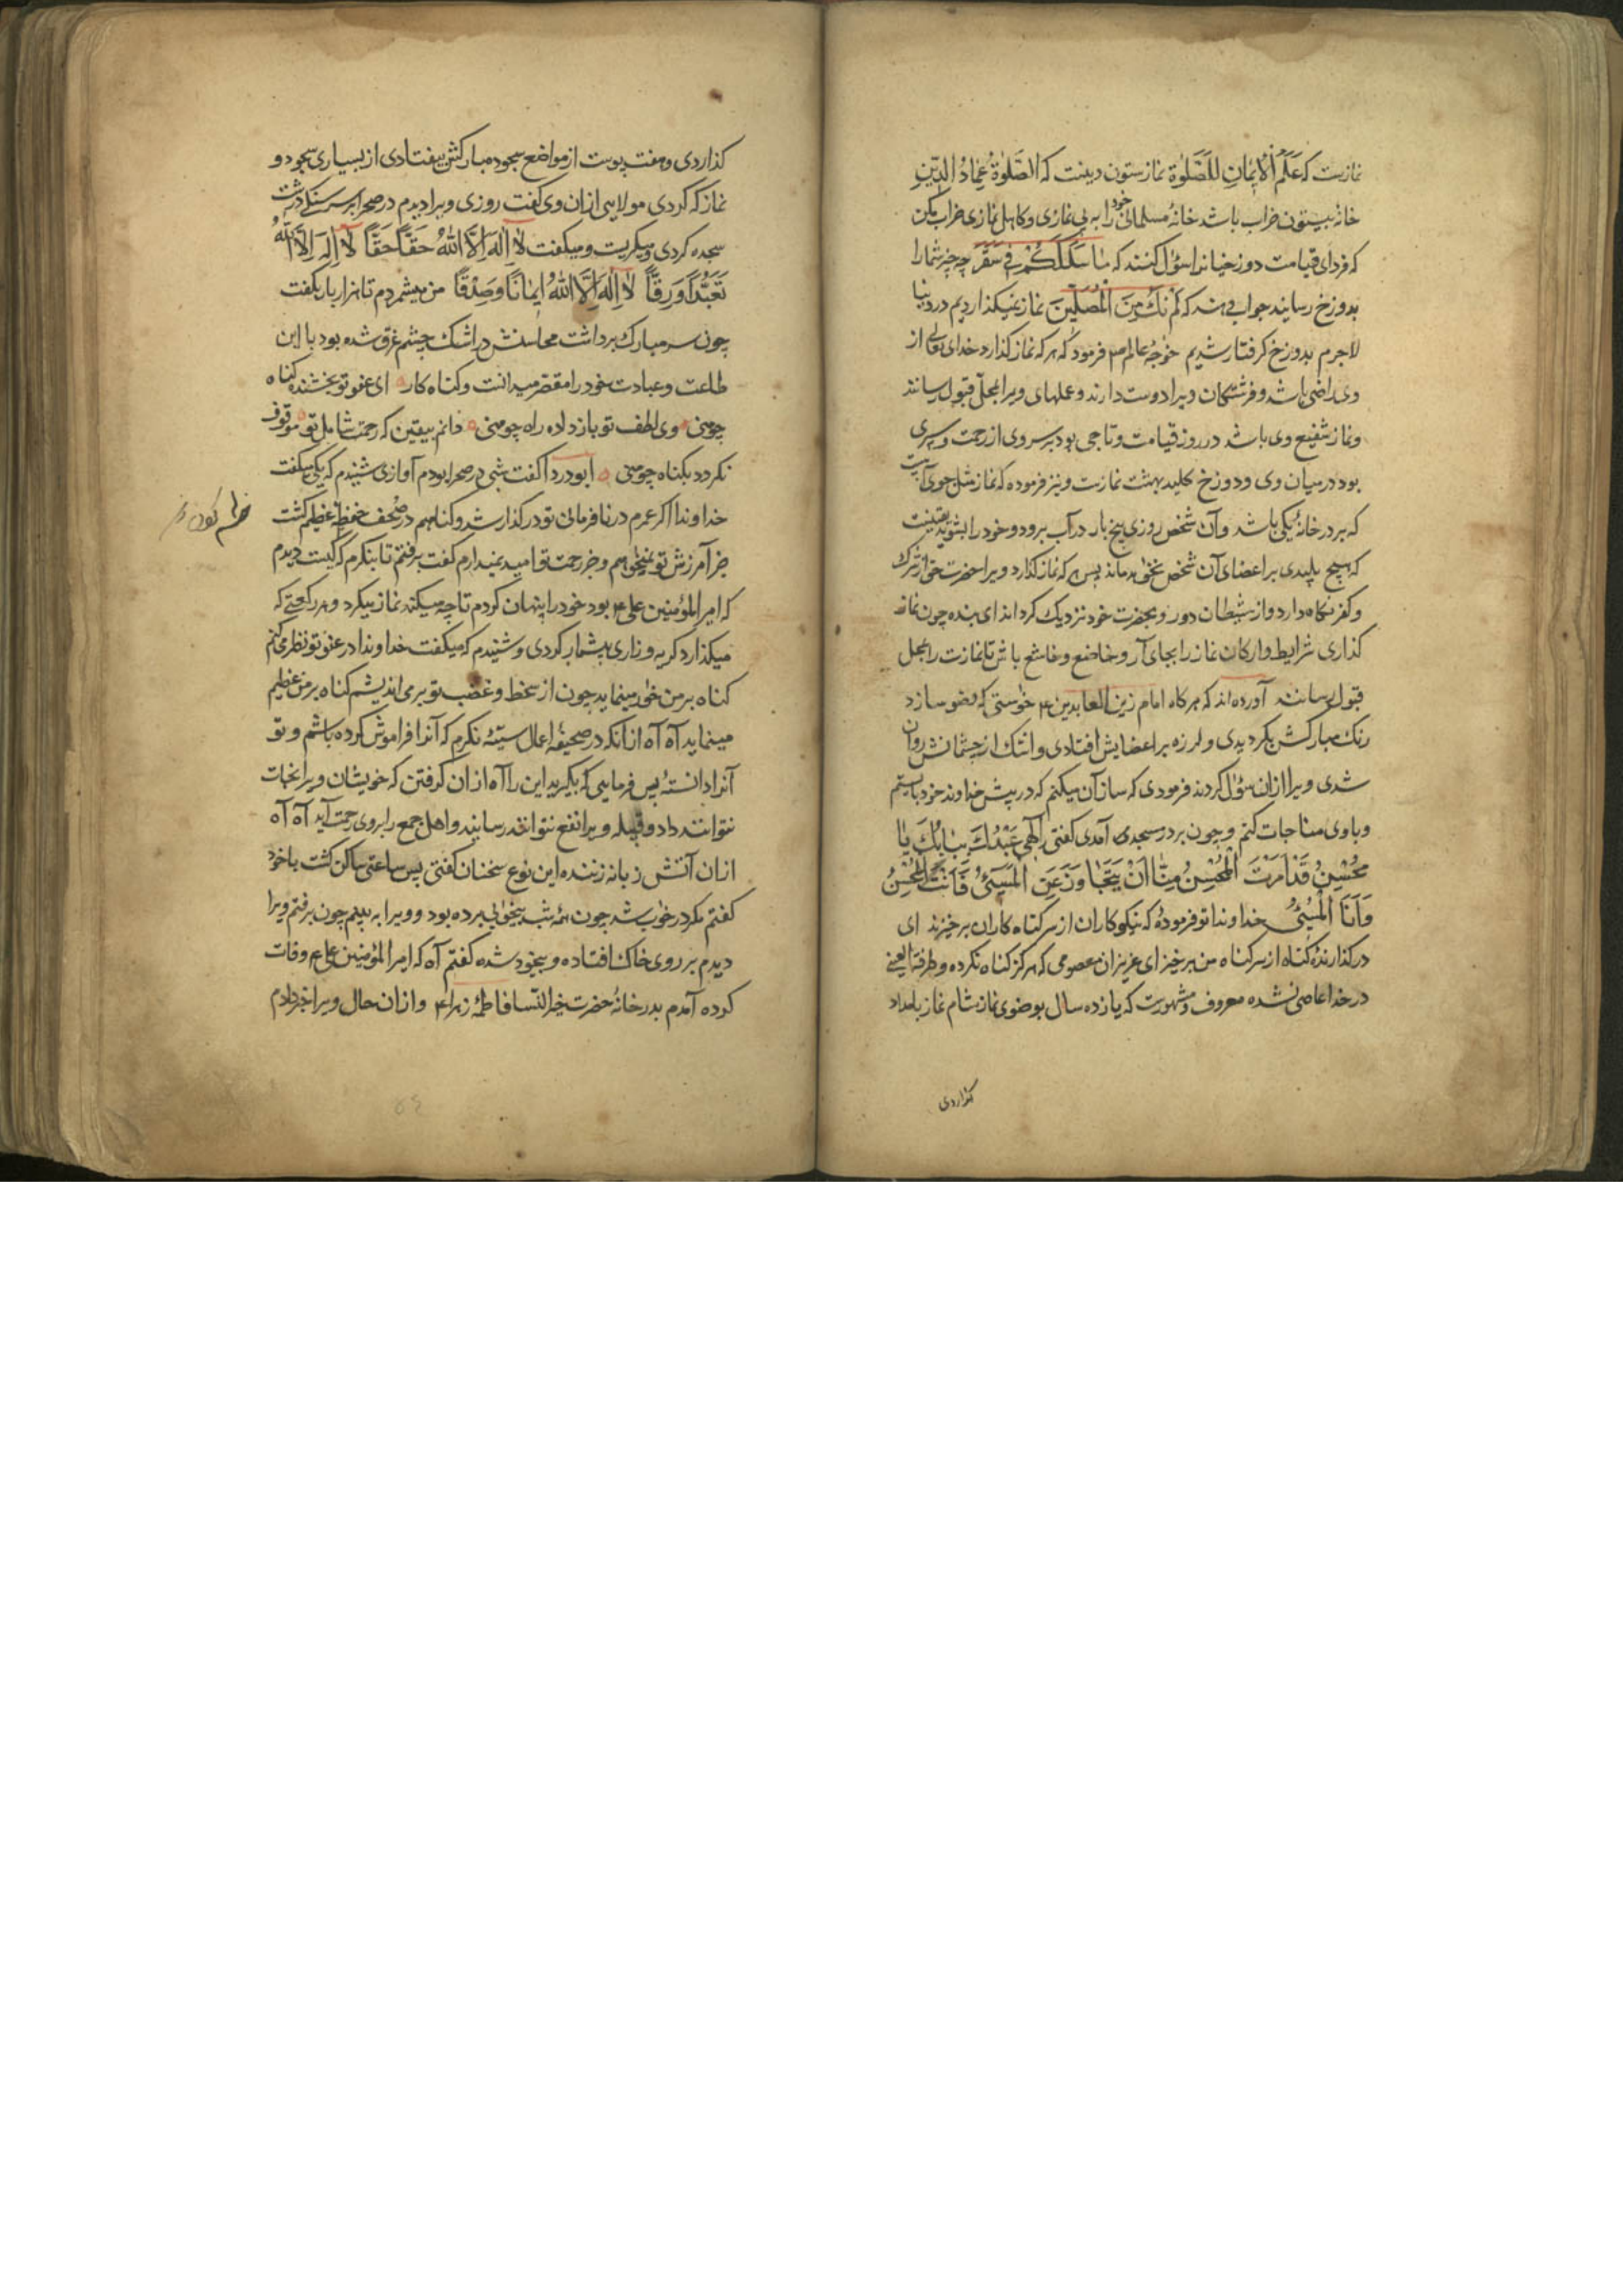 نمازست که عَلَمُ الْاِیمَانِ اَلصَّلٰوة نماز ستون دینت که الصَّلٰوةُ عِمَادُ الدّینِ
خانهٔ بیستون خراب باشد خانهٔ مسلمانی خود را به بی نمازی و کاهل نمازی خراب مکن
که فردای قیامت دوزخیانرا سؤال کنند که مَا سَلَکَکُمْ فِی سَقَرَ چه چیز شما را
بدوزخ رسانید جواب دهند که لَمْ نَکُ مِنَ الْمُصَلّینَ نماز نمیکذاردیم در دنیا
لاجرم بدوزخ کرفتار شدیم خوٰجهٔ عالم ص فرمود که هر که نماز کذارد خدای تعالی از
وی راضی باشد و فرشتکان ویرا دوست دارند و عملهای ویرا بمحل قبول رسانند
و نماز شفیع وی باشد در روز قیامت و تاجی بود بر سر وی از رحمت و سپری
بود در میان وی و دوزخ کلید بهشت نمازست و نیز فرموده که نماز مثل جوی آبیست
که بر در خانهٔ یکی باشد و آن شخص روزی پنج بار در آب برود و خود را بشوید یقینست
که هیچ پلیدی بر اعضای آن شخص نخوٰهد ماند پس هر که نماز کذارد ویرا حضرت حق از شرک
و کفر نکاه دارد و از شیطان دور و بحضرت خود نزدیک کرداند ای بنده چون نماز
کذاری شرایط و ارکان نماز را بجای آر و خاضع و خاشع باش تا نمازت را بمحل
قبول رسانند آورده اند که هر کاه امام زین العابدین ع خوٰستی که وضو سازد
رنک مبارکش بکردیدی و لرزه بر اعضایش افتادی و اشک از چشمانش روان
شدی ویرا ازان سؤال کردند فرمودی که ساز آن میکنم که در پیش خداوند خود بایستم
و با وی مناجات کنم و چون بر در مسجدی آمدی کفتی اِلٰهِی عَبْدُکَ بِبَابِکَ یَا
مُحْسِنُ قَدْ اَمَرْتَ الْمُحْسِنُ مِنَّا اَنْ یَتَجَاوَزَ عَنِ الْمُسِیئُ فَاَنْتَ الْمُحْسِنُ
وَ اَنَا الْمُسِیئُ خداوندا تو فرمودهٔ که نیکوکاران از سر کناه کاران برخیزند ای
درکذارندهٔ کناه از سر کناه من برخیز ای عزیزان معصومی که هرکز کناه نکرده و طرفة العینی
در خدا عاصی نشده معروف و مشهورست که یازده سال بوضوی نماز شام نماز بامداد
کذاردی
کذاردی و هفت پوست از مواضع سجود مبارکش بیفتادی از بسیاری سجود و
نماز که کردی مولایی ازان وی کفت روزی ویرا دیدم در صحرا بر سر سنک درشت
سجده کردی و میکریست و میکفت لَا اِلٰهَ اِلَّا اللهُ حَقًّا حَقًّا لَا اِلٰهَ اِلَّا اللهُ
تَعَبُّدًا وَ رِقًّا لَا اِلٰهَ اِلَّا اللهُ اِیمَانًا وَ صِدْقًا من میشمردم تا هزار بار بکفت
چون سر مبارک برداشت محاسنش در اشک چشم غرق شده بود با این
طاعت و عبادت خود را مقصر میدانست و کناه کار ای عفو تو بخشنده کناه
چو منی وی لطف تو بازدلاده راه چو منی دانم بیقین که رحمت شامل تو موقوف
نکردد بکناه چو منی ابودردا کفت شبی در صحرا بودم آوازی شنیدم که یکی میکفت
خداوندا اکر عمرم در نافرمانی تو درکذار شد و کناهم در صُحف حفظه عظیم کشت
جز آمرزش تو نمیخوٰهم و جز رحمت تو امید نمیدارم کفت برفتم تا بنکرم که کیست دیدم
که امیر المؤمنین علی ع بود خود را پنهان کردم تا چه میکند نماز میکرد و هر رکعتی که
میکذارد کریه و زاری بیشمار کردی و شنیدم که میکفت خداوندا در عفو تو نظر می کنم
کناه بر من خوٰر مینماید چون از سخط و غضب تو بر می اندیشم کناه بر من عظیم
مینماید آه آه از آنکه در صحیفهٔ اعمال سیئه نکرم که آنرا فراموش کرده باشم و تو
آنرا دانستهٔ پس فرمایی که بکیرید این را آه ازان کرفتن که خویشان ویرا نجات
نتوانند داد و قبیله ویرا نفع نتوانند رسانید و اهل جمع را بروی رحمت آید آه آه
ازان آتش زبانه زننده این نوع سخنان کفتی پس ساعتی ساکن کشت با خود
کفتم مکر در خوٰب شد چون همه شب بیخوٰبی برده بود و ویرا به بینم چون برفتم ویرا
دیدم بر روی خاک افتاده و بیخود شده کفتم آه که امیر المؤمنین علی ع وفات
کرده آمدم بدر خانهٔ حضرت خیر النسا فاطمهٔ زهرا ع و ازان حال ویرا خبر دادم